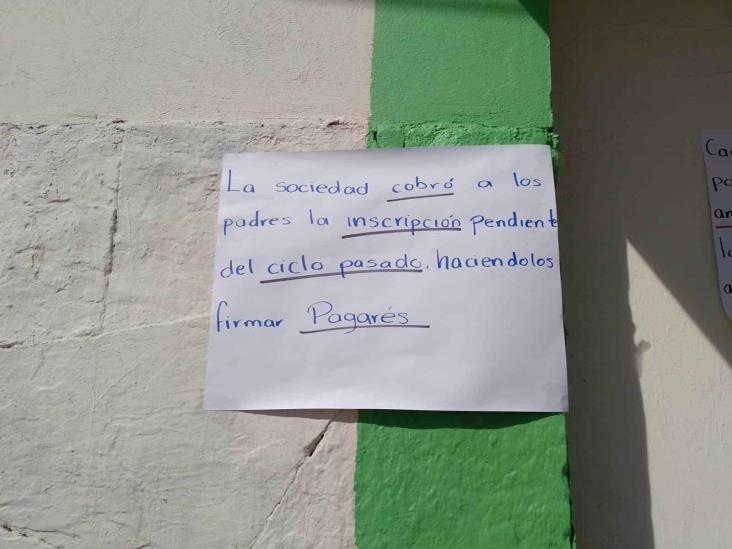 La sociedad cobró a los
padres la inscripción pendiente
del ciclo pasado, haciendolos
firmar Pagarés